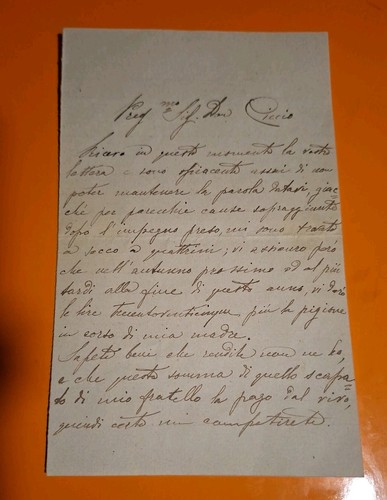 Preg.mo Sig. Don Ciccio
Ricevo in questo momento la vostra
lettera e sono spiacente assai di non
poter mantenere la parola datavi, giac
chè per parecchie cause sopraggiunte
dopo l'impegno preso, mi sono trovato
a secco a quattrini; vi assicuro però
che nell'autunno prossimo od al più
tardi alla fine di questo anno, vi darò
le lire trecentoventicinque più la pigione
in corso di mia madre.
Sapete bene che rendite non ne ho,
e che questa somma di quello scapa
to di mio fratello la pago dal vivo,
quindi certo mi compatirete.